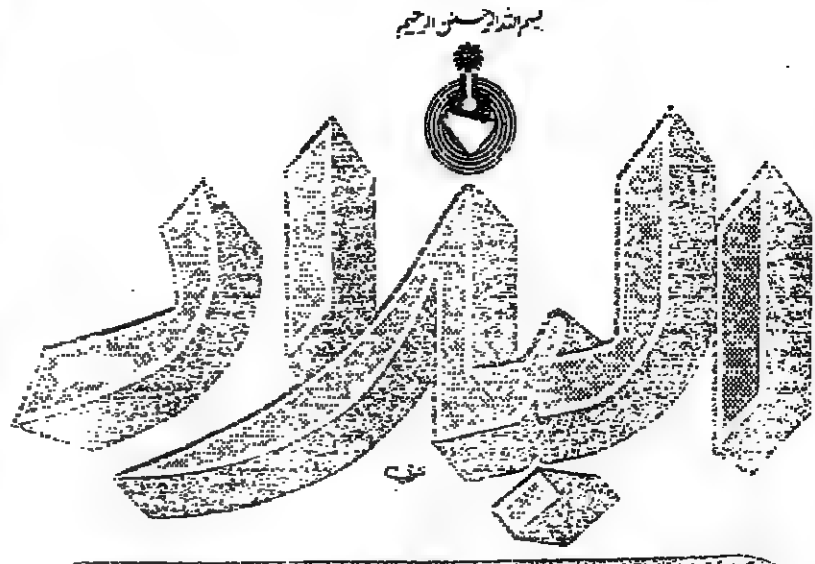 بسم الله الرحمن الرحيم
البلاد